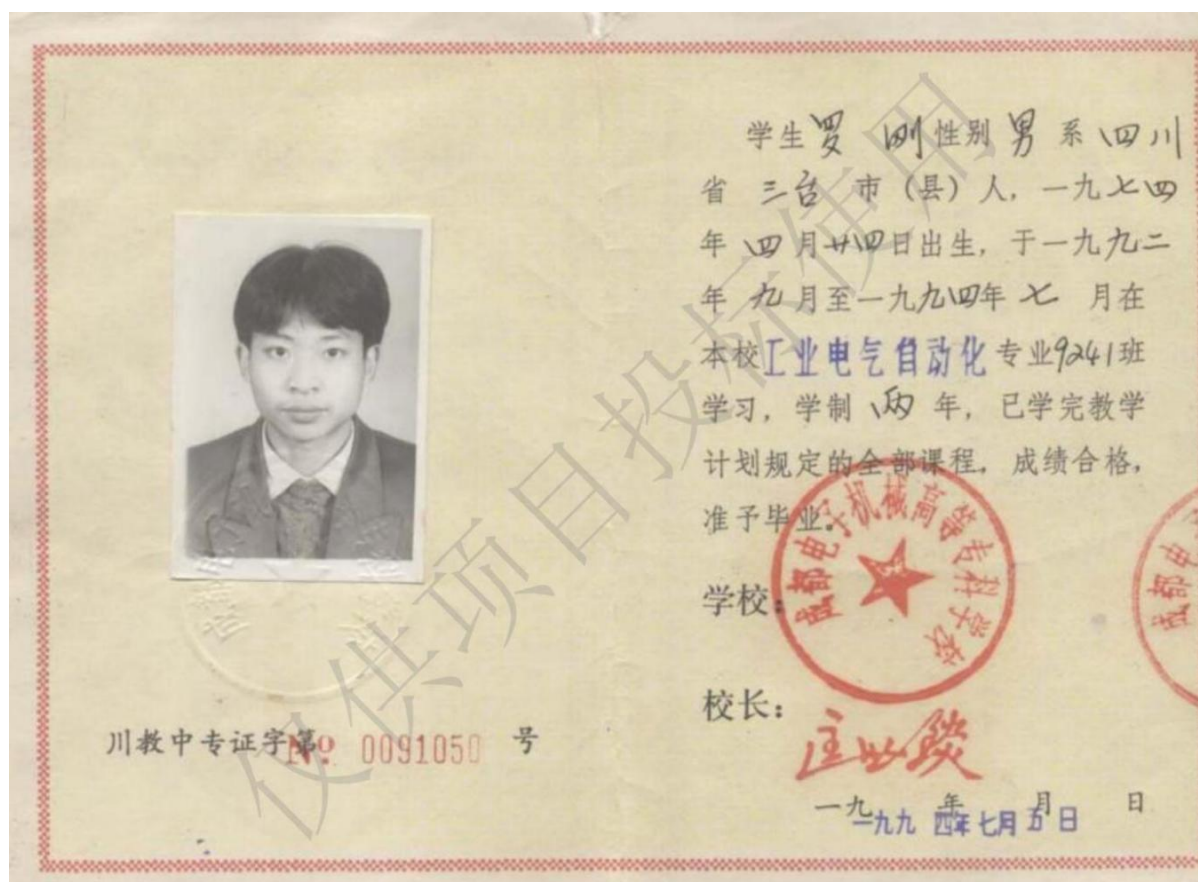 学生罗 刚性别男系四川
省 三台 市（县）人，一九七四
年四月廿四日出生，于一九九二
年九月至一九九四年七 月在
本校工业电气自动化专业9241班
学习，学制两年，已学完教学
计划规定的全部课程。成绩合格，
准予毕业。
成都电子机械高等专科学校
学校：
校长：
一九 年 月 日
一九九四年七月五日
川教中专证字第№ 0091050 号
仅供项目投标使用
成都电